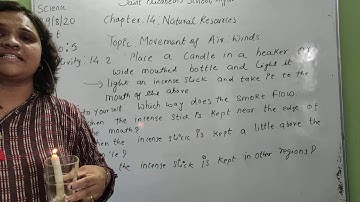 Science Saint Elizabeth School,
9/8/20 Chapter:14. Natural Resources
Topic Movement of Air Winds
Activity: 14.2 Place a Candle in a beaker or
wide mouthed bottle and light it
→ light an incense stick and take it to the
mouth of the above
to yourself. Which way does the smoke flow
when the incense stick is kept near the edge of
the mouth?
when the incense stick is kept a little above the
the incense stick is kept in other regions?